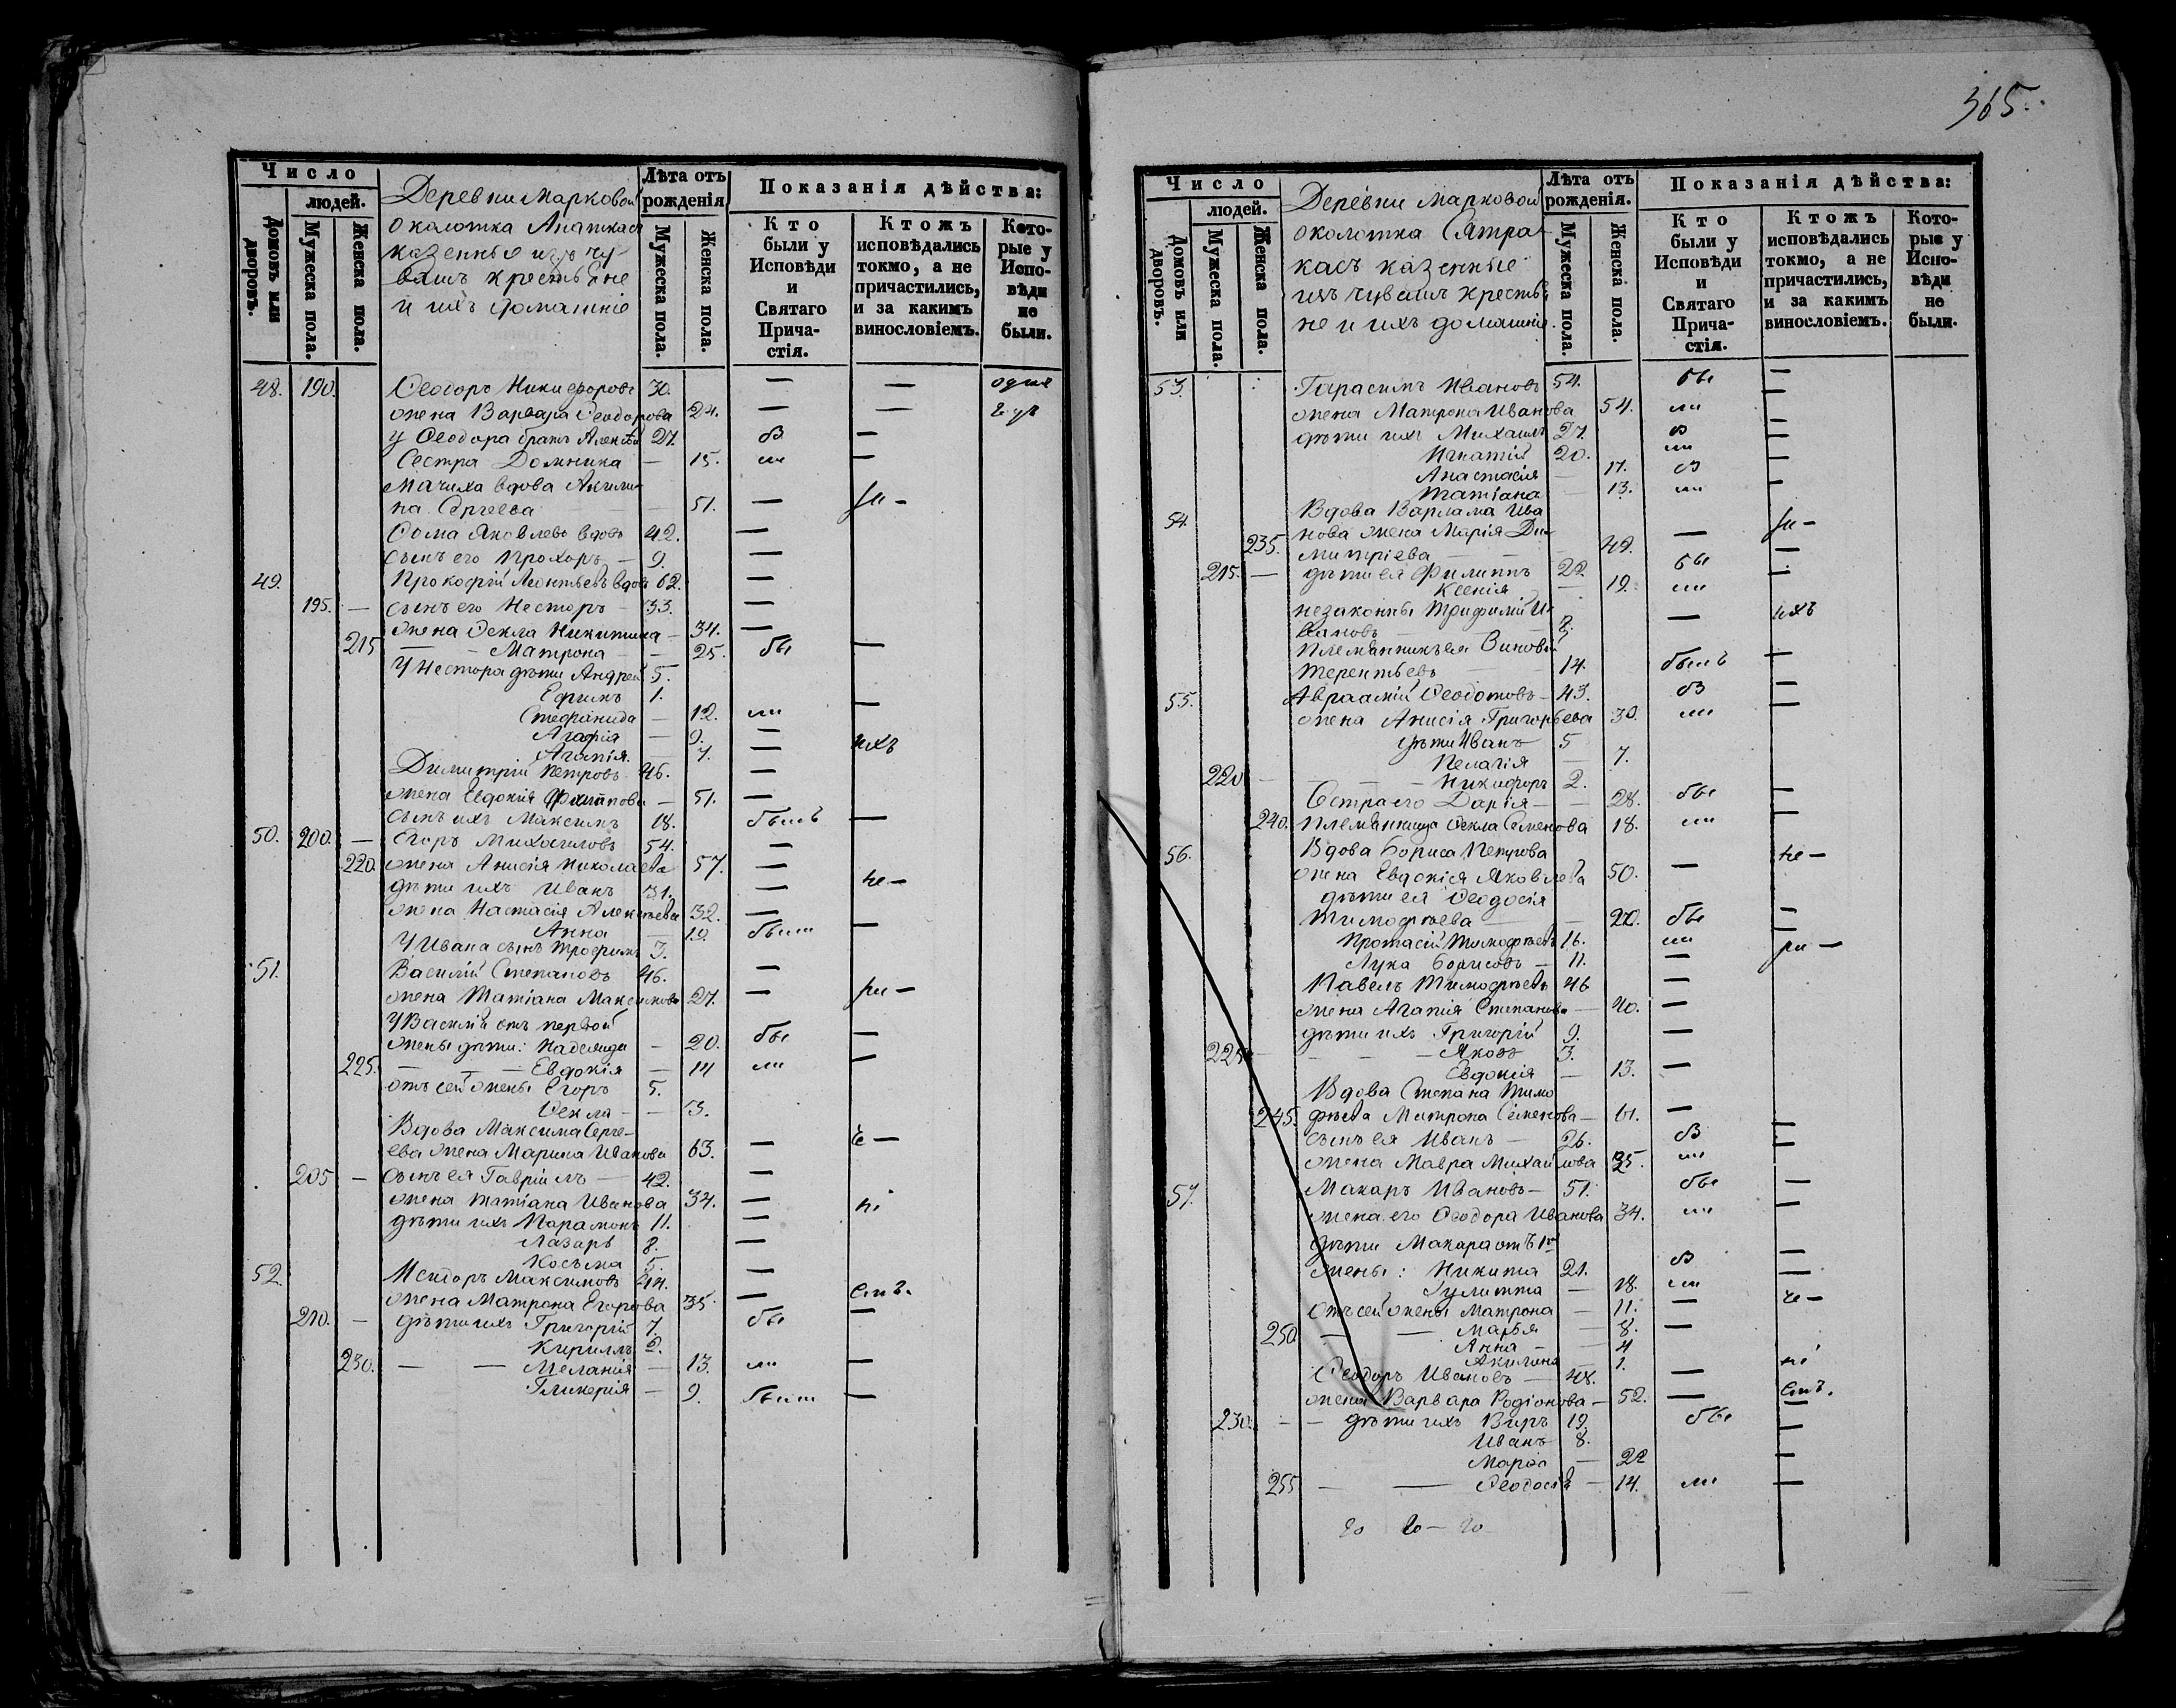 365.
Число
людей.
Домовъ или дворовъ.
Мужеска пола.
Женска пола.
Деревни Марковой
околотка
казенные изъ чу-
вашъ крестьяне
и ихъ домашніе
Лѣта отъ рожденія
Мужеска пола.
Женска пола.
Показанія дѣйства:
Кто были у Исповѣди и Святаго Прича-стія.
Ктожъ исповѣдались токмо, а не причастились, и за какимъ винословіемъ.
Кото-рые у Испо-вѣди не были.
48. 190. Ѳеодоръ Никифоровъ 30. — —
жена Варвара Ѳеодорова 24. — —
у Ѳеодора братъ Алексѣй 27. —
Сестра Домника — 15. ли —
Мачиха вдова Акили-
на Сергеева 51. —
Ѳома Яковлевъ вдовъ 42. —
сынъ его Прохоръ — 9. —
49. Прокофій Леонтьевъ вдовъ 62. —
195. — сынъ его Несторъ — 33. —
жена Ѳекла Никитина — 34. —
215 — — Матрона — — 25. бы —
У Нестора дѣти Андрей 5.
Ефимъ 1.
Стефанида — 12. ли —
Агафія — 9. —
Агапія — 7. — ихъ
Димитрій Петровъ 46. —
жена Евдокія Филиппова — 51. —
сынъ ихъ Максимъ 18. былъ —
50. 200. — Егоръ Михаиловъ 54. —
220. жена Анисія Николаева 57. —
дѣти ихъ Иванъ 31. — не —
жена Настасія Алексѣева 32. —
Анна — 19. —
У Ивана сынъ Трофимъ 3.
51. Василій Степановъ 46. —
жена Татіана Максимова 27. —
У Василія отъ первой
жены дѣти: Надежда — 20. бы —
225. — — — Евдокія — 14 ли —
отъ сей жены Егоръ 5.
Ѳекла — — 3.
Вдова Максима Серге-
ева жена Марина Иванова 63. —
205 — сынъ ея Гавріилъ — 42. —
жена Татіана Иванова 34. —
дѣти ихъ Парамонъ 11. —
Лазарь 8. —
Косьма 5.
52. Исидоръ Максимовъ 44. —
жена Матрона Егорова 35 —
210. — дѣти ихъ Григорій 7. бы —
Кириллъ 2.
230. — — Меланія — 13. ли —
Гликерія — 9. —
Число
людей.
Домовъ или дворовъ.
Мужеска пола.
Женска пола.
Деревни Марковой
околотка Сятра-
касъ казенные
изъ чувашъ крестья-
не и ихъ домашніе.
Лѣта отъ рожденія.
Мужеска пола.
Женска пола.
Показанія дѣйства:
Кто были у Исповѣди и Святаго Прича-стія.
Ктожъ исповѣдались токмо, а не причастились, и за какимъ винословіемъ.
Кото-рые у Испо-вѣди не были.
53. Гарасимъ Ивановъ 54. бы —
жена Матрона Иванова 54. ли —
дѣти ихъ Михаилъ 27. —
Игнатій 20. ли —
Анастасія 17. —
Татіана — 13. ли —
54. Вдова Варлама Ива
нова жена Марія Ди-
235. митріева — — 49. —
215. — дѣти ея Филиппъ 22 бы —
Ксенія — 19. ли —
незаконны Трифилій И-
вановъ — — 8. — ихъ
Племянникъ ея Зиновій
Терентьевъ — 14. былъ —
55. Авраамій Ѳеодотовъ — 43. —
жена Анисія Григорьева 30. ли —
дѣти Иванъ 5
Пелагія — 7.
220 — — — Никифоръ 2.
Сестра его Дарія — — 28. бы —
240. Племянница Ѳекла Семенова 18. ли —
56. Вдова Бориса Петрова
жена Евдокія Яковлева 50. — не —
дѣти ея Ѳеодосія
Тимофѣева — — 20. бы —
Протасій Тимофѣевъ 16. ли
Лука Борисовъ — 11. —
Павелъ Тимофѣевъ 46 —
жена Агапія Степанова — 40. —
дѣти ихъ Григорій 9. —
225 — — — Яковъ 3.
Евдокія — 13. —
Вдова Степана Тимо
245. фѣева Матрона Семенова — 61. —
сынъ ея Иванъ — 26. —
жена Мавра Михайлова 25. ли —
57. Макаръ Ивановъ — 51. бы —
жена его Ѳеодора Иванова 34. ли —
дѣти Макара отъ 1й
жены: Никита 21. —
Іулитта — 18. ли —
Отъ сей жены Матрона — 11. —
250 — — Марья — 8. —
Анна — 4
Акилина — 1.
Ѳеодоръ Ивановъ — 48. —
жена Варвара Родіонова — 52. —
230. — — дѣти ихъ Виръ 19. бы —
Иванъ 8. —
Марія — 22 —
255 — — Ѳеодосія — 14. ли —